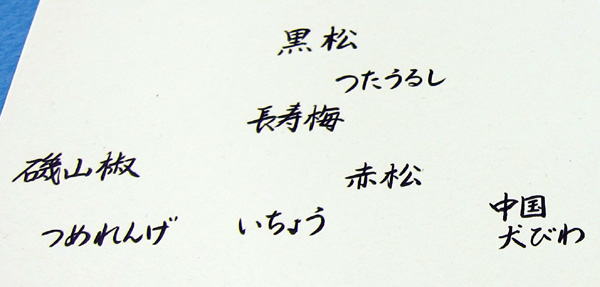 黒松
つたうるし
長寿梅
磯山椒
赤松
つめれんげ
いちょう
中国
犬びわ